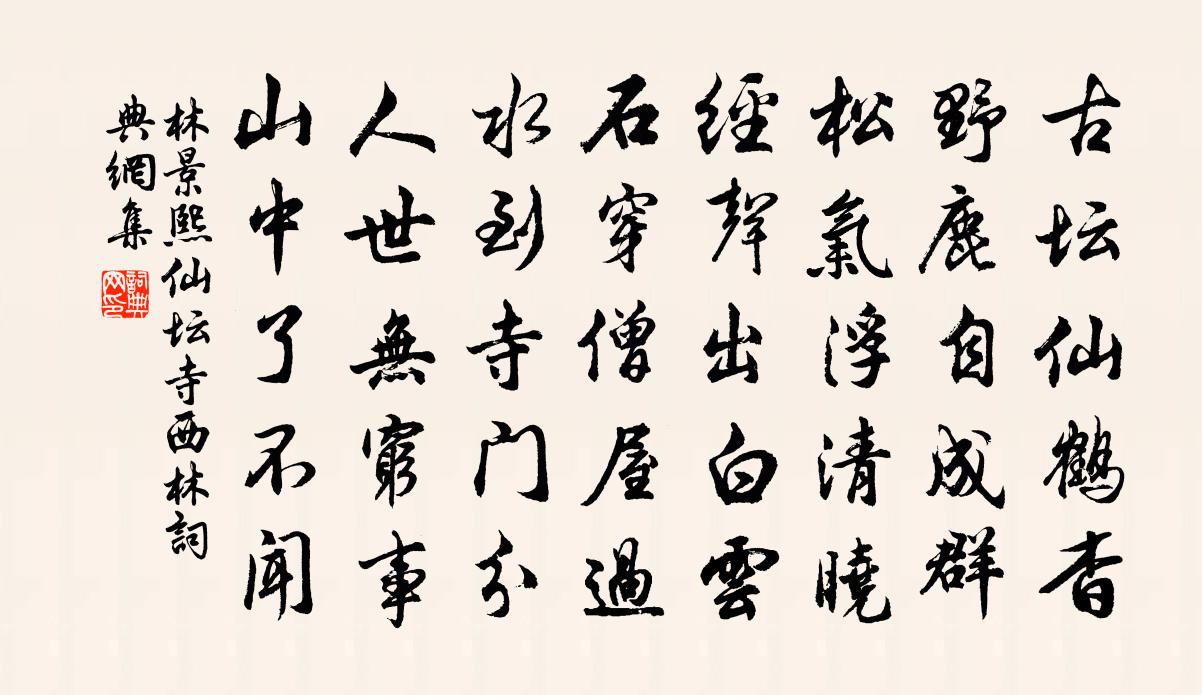 古坛仙鶴杳
野鹿自成群
松氣浮清曉
經聲出白雲
石穿僧屋過
水到寺门分
人世無窮事
山中了不闻
林景熙仙坛寺西林詞
典網集
詞典
网印